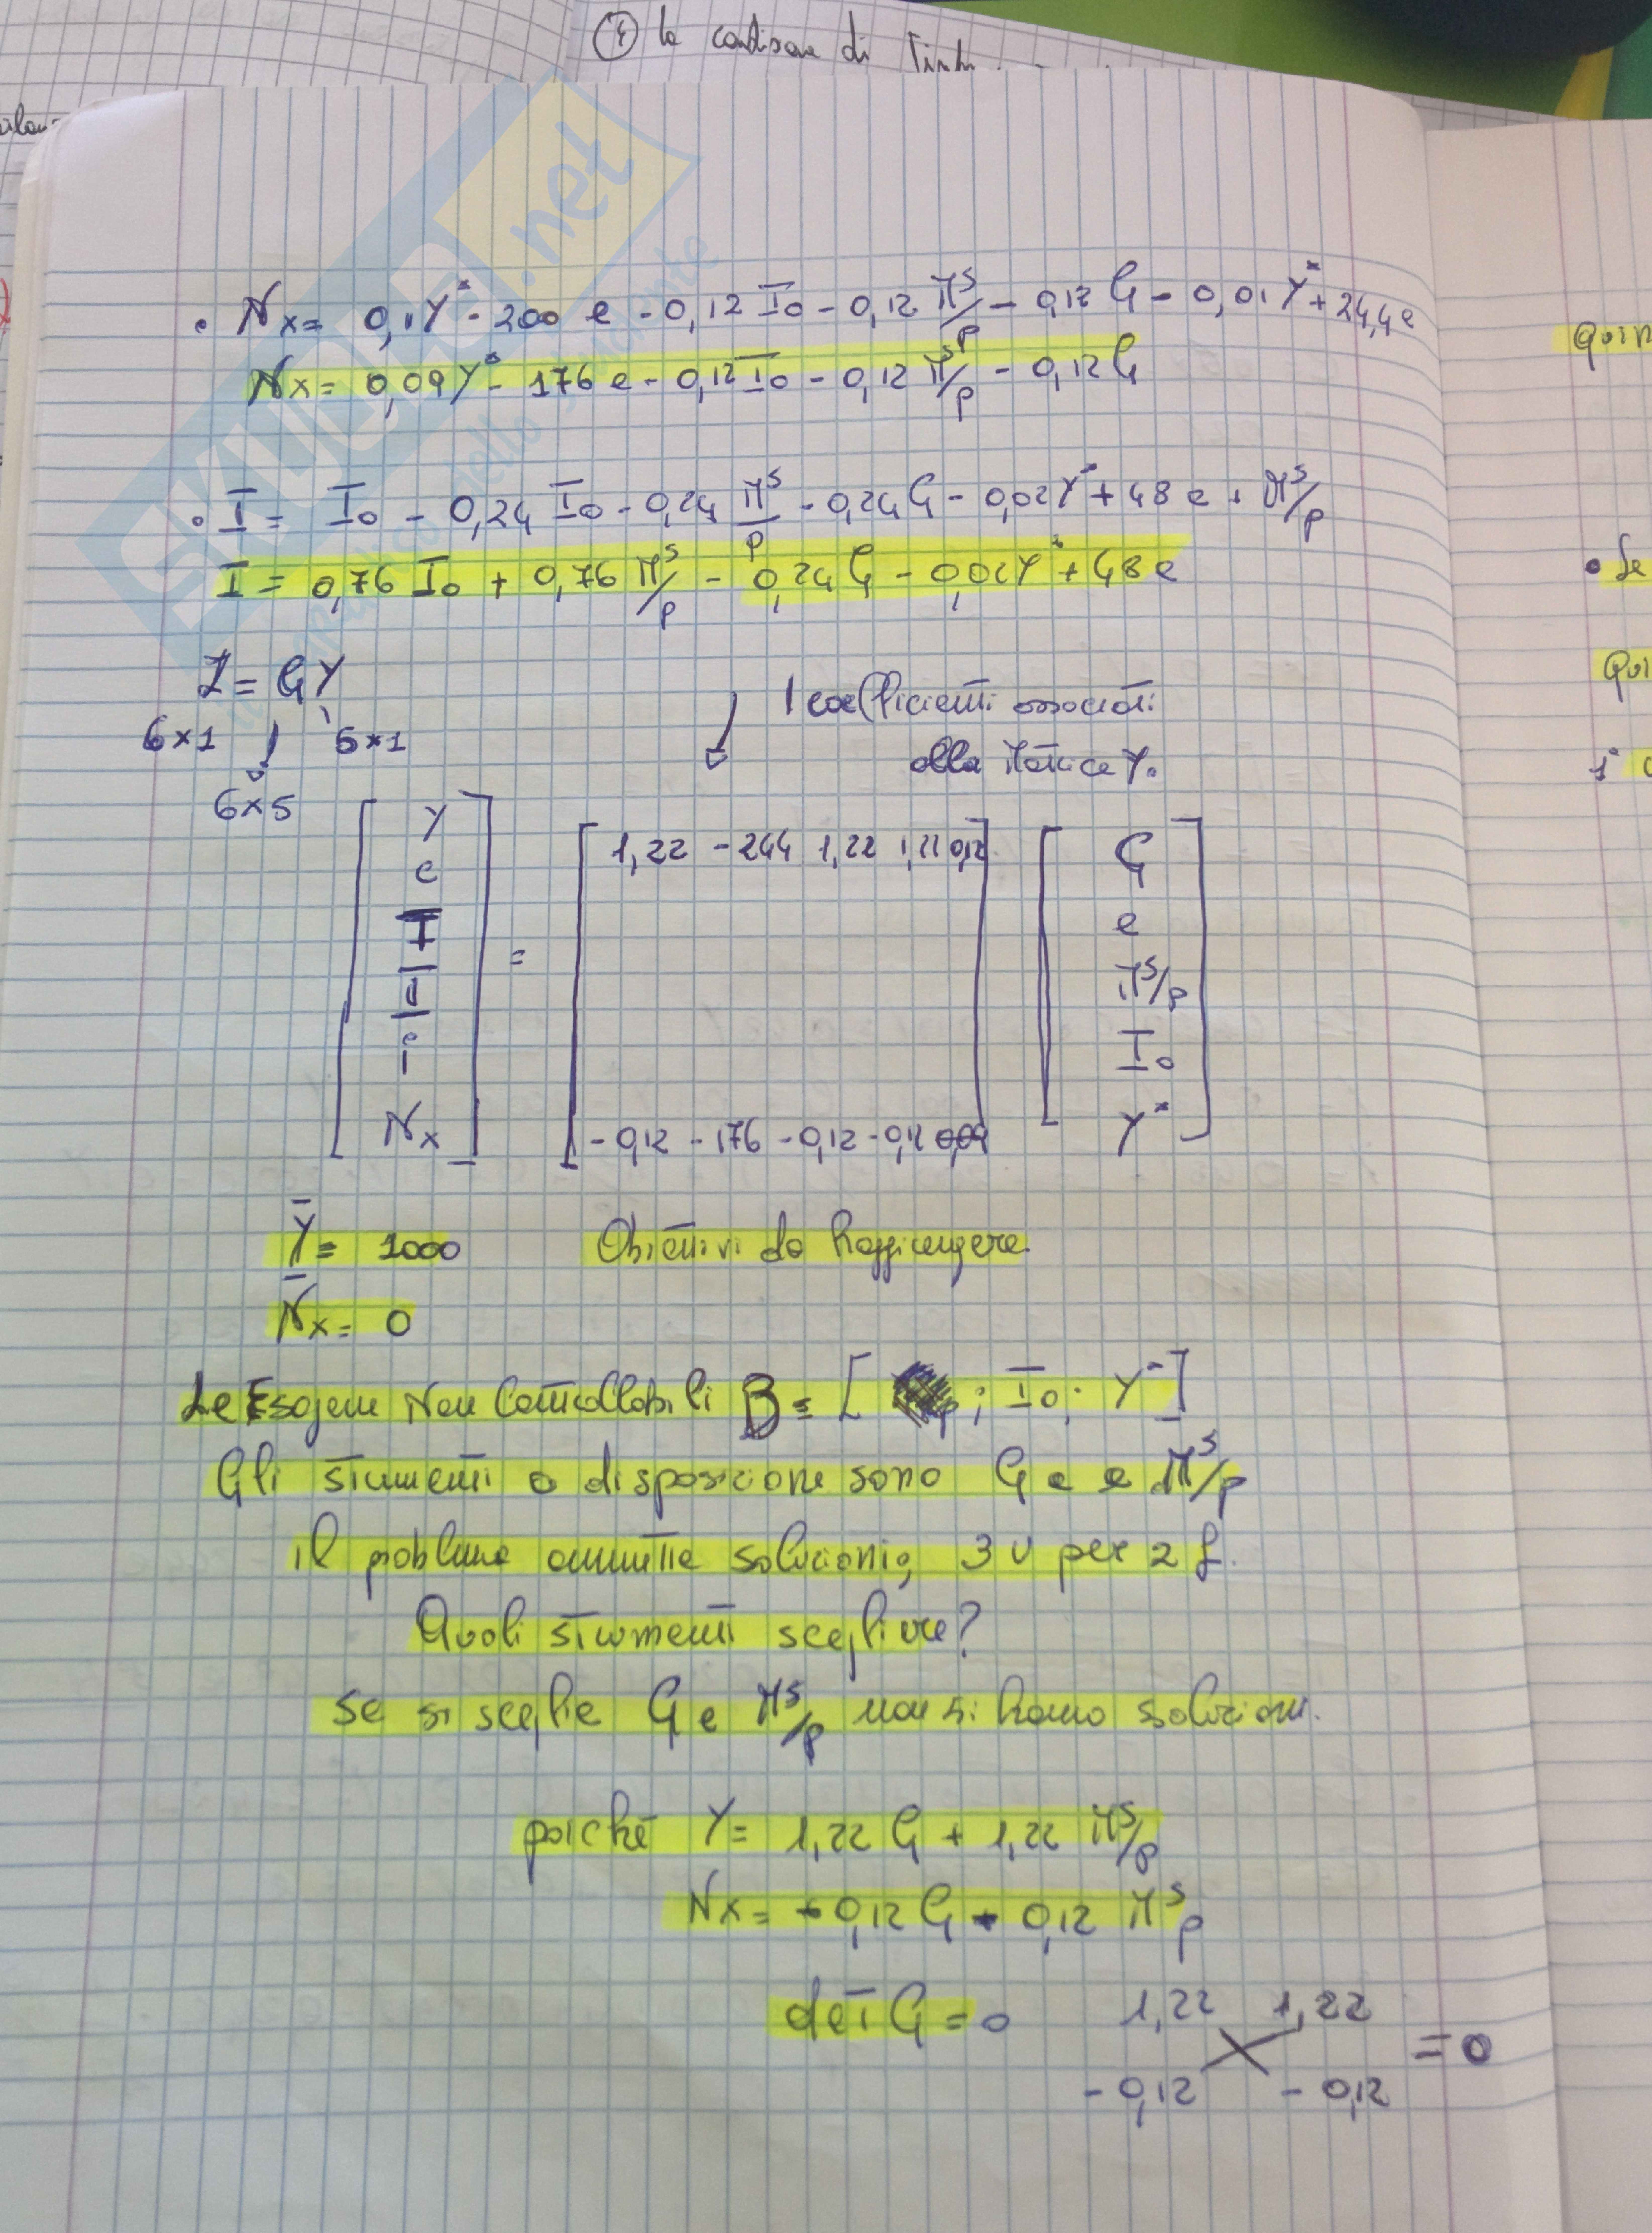 ④ la condizione di Tinb
• Nx = 0,1Y* - 200 e - 0,12 I0 - 0,12 Mˢ/p - 0,12 G - 0,01Y* + 24,4e
Nx = 0,09Y* - 176 e - 0,12 I0 - 0,12 Mˢ/p - 0,12 G
• I = I0 - 0,24 I0 - 0,24 Mˢ/p - 0,24G - 0,02Y* + 48 e + Mˢ/p
I = 0,76 I0 + 0,76 Mˢ/p - 0,24 G - 0,02Y* + 48 e
Z = GY
I coefficienti associati
6×1 5×1
alla Matrice Y.
6×5
Y
1,22 -244 1,22 1,22 0,12
G
C
I
=
e
Mˢ/p
i
I0
Nx
-0,12 -176 -0,12 -0,12 0,09
Y*
Y̅ = 1000 Obiettivi da Raggiungere
N̅x = 0
Le Esogene Non Controllabili B = [ ; I0; Y* ]
Gli strumenti a disposizione sono G e e Mˢ/p
il problema ammette soluzioni, 3 v per 2 f.
Quali strumenti scegliere?
Se si sceglie G e Mˢ/p non si hanno soluzioni.
poiché Y = 1,22 G + 1,22 Mˢ/p
Nx = -0,12 G - 0,12 Mˢ/p
det G = 0 1,22 1,22
= 0
-0,12 -0,12
Quin
• Se
Qui
1°
SKUOLA.net